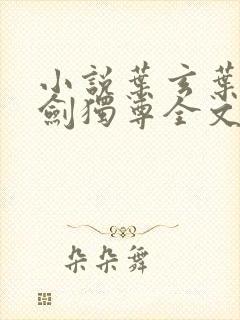 小說葉玄葉
劍獨尊全文
朵朵舞